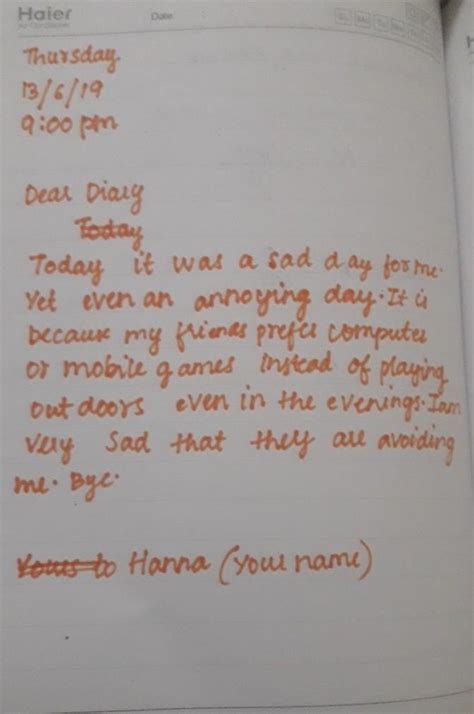 Haier
Date
Thursday
13/6/19
9:00 pm
Dear Diary
Today
Today it was a sad day for me.
Yet even an annoying day. It is
because my friends prefer computer
or mobile games instead of playing
outdoors even in the evenings. I am
very sad that they are avoiding
me. Bye.
Yours to Hanna (Your name)